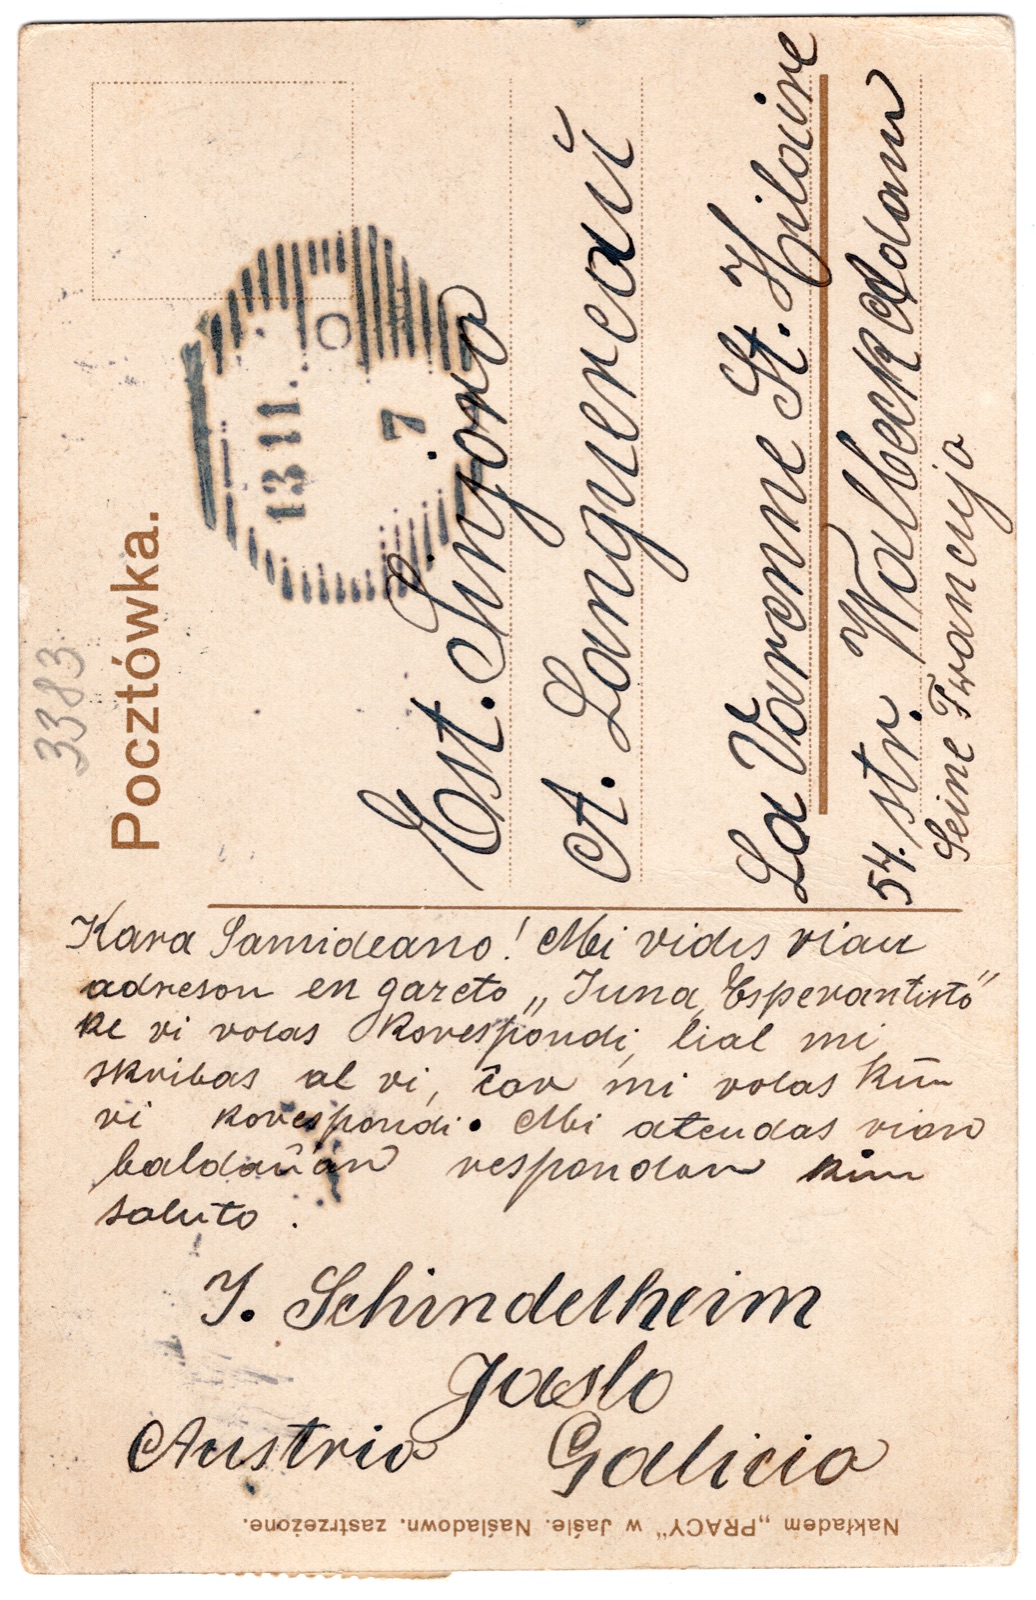 3383
Pocztówka.
13 11
7
Est. Sinjoro
A. Languereaŭ
La Varenne St. Hilaire
54. str. Walbeck
Seine Francujo
Kara Samideano! Mi vidis vian
adreson en gazeto „Juna Esperantisto”
ke vi volas korespondi, tial mi
skribas al vi, ĉar mi volas kūn
vi korespondi. Mi atendas vian
baldaŭan respondon kūn
saluto.
J. Schindelheim
Jaslo
Austrio Galicio
Nakładem „PRACY” w Jaśle. Naśladown. zastrzeżone.